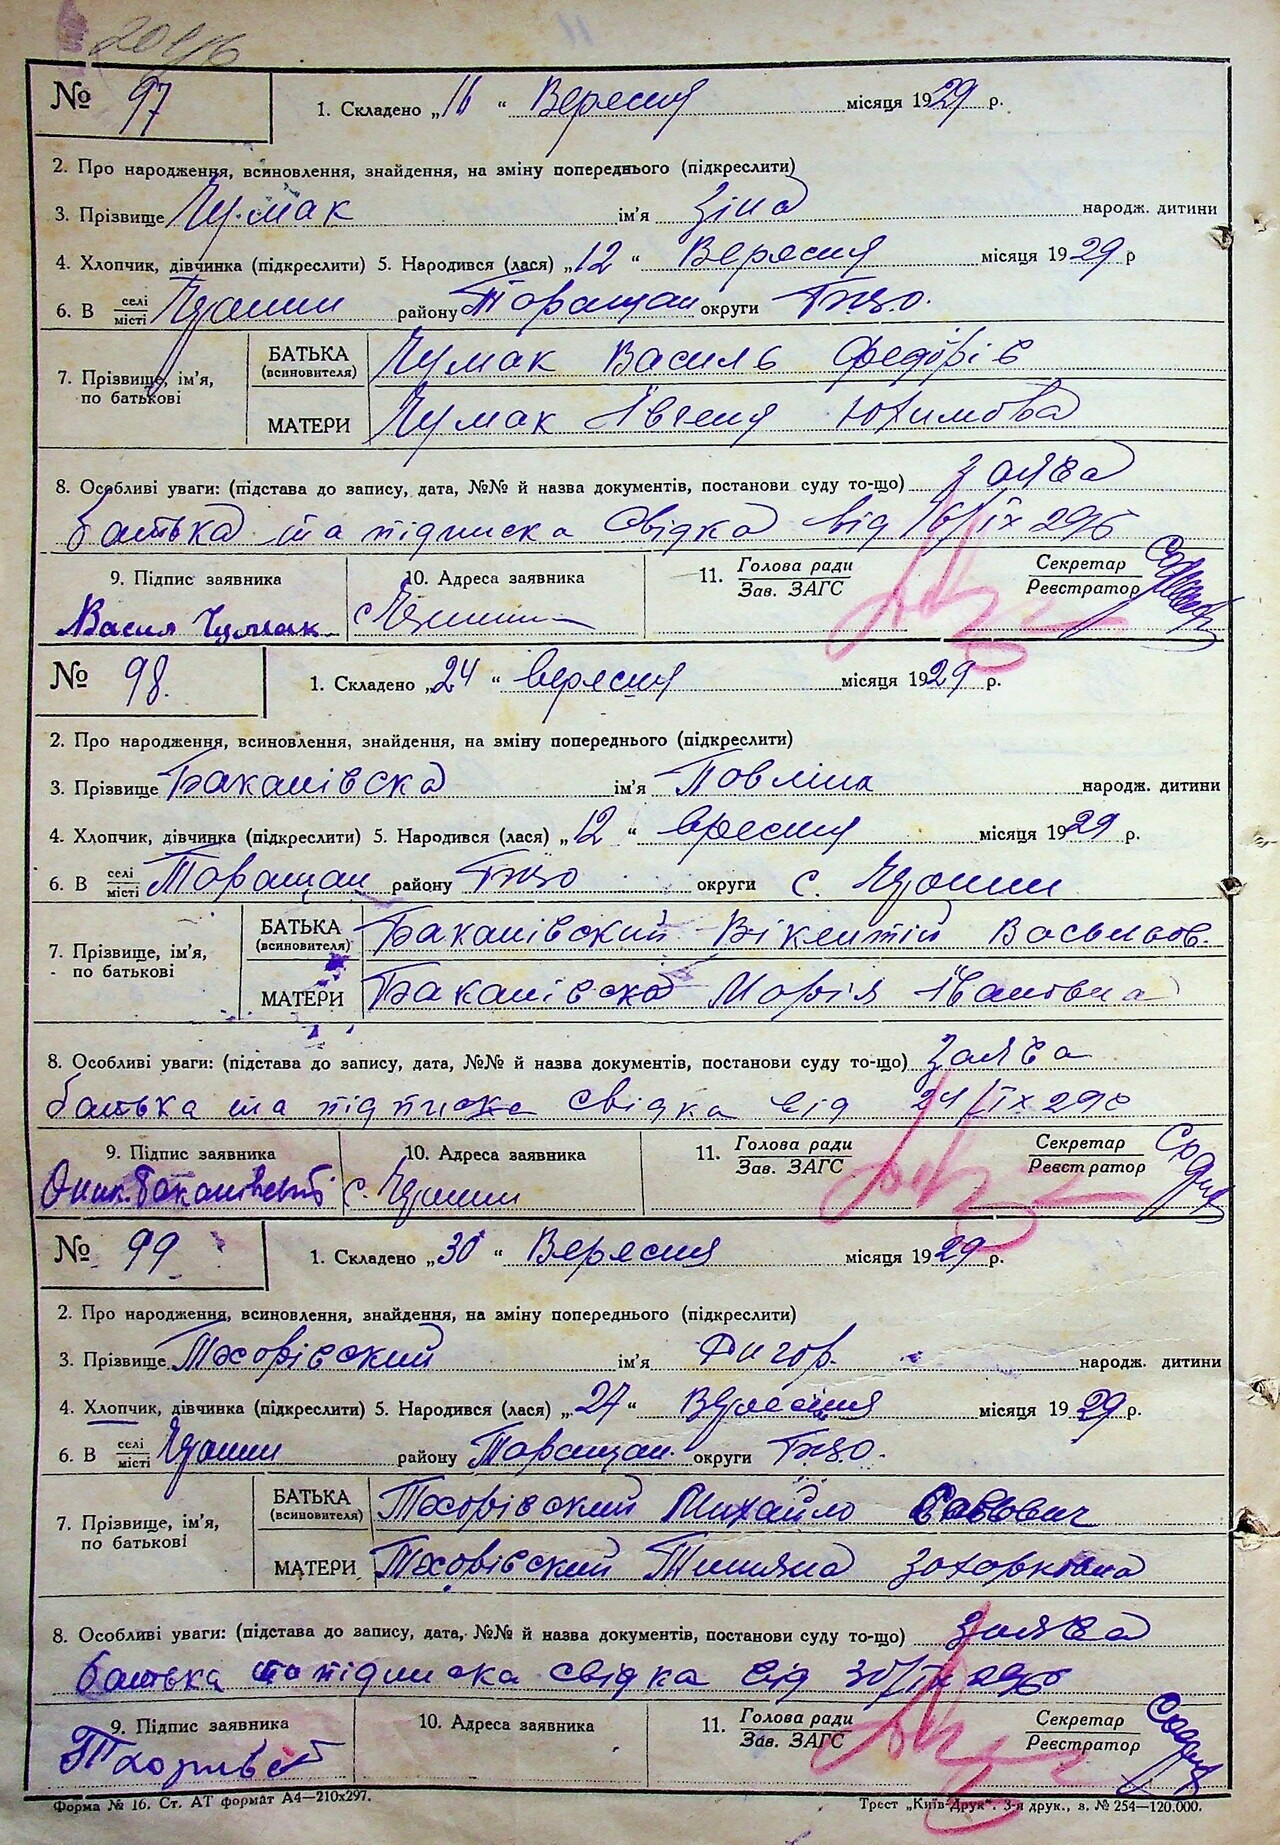 № 97 1. Складено „16“ Вересня місяця 1929 р.
2. Про народження, всиновлення, знайдення, на зміну попереднього (підкреслити)
3. Прізвище Чумак ім'я Зіна народж. дитини
4. Хлопчик, дівчинка (підкреслити) 5. Народився (лася) „12“ Вересня місяця 1929 р
6. В селі місті району Таращан округи
7. Прізвище, ім'я, по батькові БАТЬКА (всиновителя) Чумак Василь Федорів
МАТЕРИ Чумак Євгенія Юхимова
8. Особливі уваги: (підстава до запису, дата, №№ й назва документів, постанови суду то-що) заява
батька та підписка свідка від 16/IX 29 р
9. Підпис заявника 10. Адреса заявника 11. Голова ради Зав. ЗАГС Секретар Реєстратор
Васил Чумак с.
№ 98. 1. Складено „24“ вересня місяця 1929 р.
2. Про народження, всиновлення, знайдення, на зміну попереднього (підкреслити)
3. Прізвище Баканівска ім'я Павліна народж. дитини
4. Хлопчик, дівчинка (підкреслити) 5. Народився (лася) „12“ вересня місяця 1929 р.
6. В селі місті Таращан району округи с.
7. Прізвище, ім'я, по батькові БАТЬКА (всиновителя) Баканівский Вікентій Васильов.
МАТЕРИ Баканівска Марія Івановна
8. Особливі уваги: (підстава до запису, дата, №№ й назва документів, постанови суду то-що) Заява
батька та підписка свідка від 24/IX 29 р
9. Підпис заявника 10. Адреса заявника 11. Голова ради Зав. ЗАГС Секретар Реєстратор
с.
№ 99 1. Складено „30“ Вересня місяця 1929 р.
2. Про народження, всиновлення, знайдення, на зміну попереднього (підкреслити)
3. Прізвище Тхорівский ім'я народж. дитини
4. Хлопчик, дівчинка (підкреслити) 5. Народився (лася) „27“ Вересня місяця 1929 р.
6. В селі місті району Таращан. округи
7. Прізвище, ім'я, по батькові БАТЬКА (всиновителя) Тхорівский Михайло Савович
МАТЕРИ Тхорівский
8. Особливі уваги: (підстава до запису, дата, №№ й назва документів, постанови суду то-що) заява
батька та підписка свідка від 30/IX 29 р
9. Підпис заявника 10. Адреса заявника 11. Голова ради Зав. ЗАГС Секретар Реєстратор
Форма № 16. Ст. АТ формат А4—210х297. Трест „Київ-Друк“. 3-я друк., з. № 254—120.000.